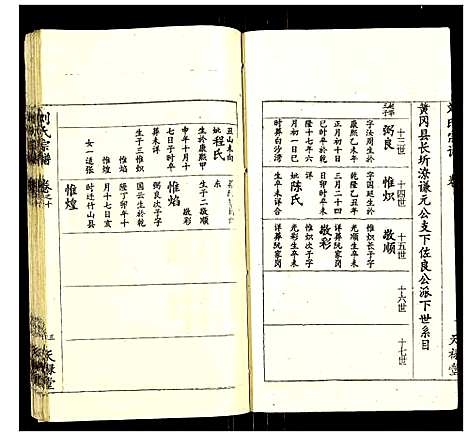 劉氏宗譜 卷
黄冈县长圻潦谦元公支下佐良公派下世系目
十三世
十四世
十五世
十六世
十七世
弼良
字汝周生於
康熙乙未年
正月初十日
隆十七年
巳时卒乾
时葬白沙湾
惟炽
字国廷生於
乾隆乙丑年
三月二十四
日卯时卒
陈氏
生卒未详合
敬顺
惟炽长子字
光顺生卒未
详葬阮家岗
敬彩
惟炽次子字
光彩生卒未
详葬阮家岗
天禄堂
丑山未向
妣程氏
生於康熙甲
申年十月十
七日子时卒
葬未详
生子三惟炽
惟焰
惟煌
女一适张
东
生子二敬顺
敬彩
惟焰
弼良次子字
国云生於乾
隆丁卯年十
月十七日亥
时迁竹山县
惟煌
刘氏宗谱 卷之十
三 天禄堂